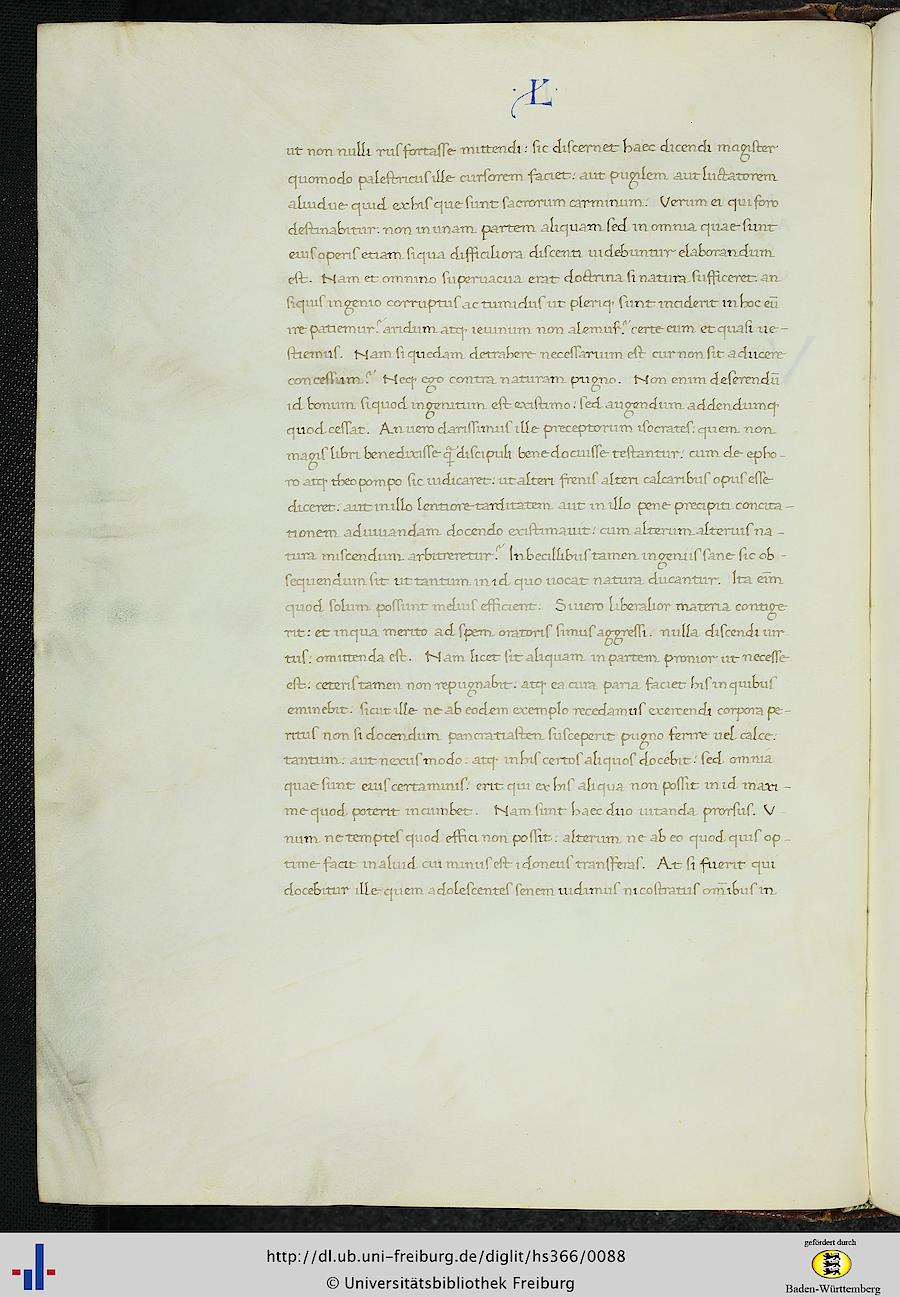 ·L·
ut non nulli rus fortasse mittendi: sic discernet haec dicendi magister
quomodo palestricus ille cursorem faciet: aut pugilem aut luctatorem
aliudue quid ex his que sunt sacrorum carminum. Verum ei qui foro
destinabitur: non in unam partem aliquam sed in omnia quae sunt
eius operis etiam siqua difficiliora discenti uidebuntur elaborandum
est. Nam et omnino superuacua erat doctrina si natura sufficeret. an
siquis ingenio corruptus ac tumidus ut pleriq; sunt inciderit in hoc eū
ire patiemur? aridum atq; ieiunum non alemus? certe eum et quasi ue-
stiemus. Nam si quedam detrahere necessarium est cur non sit adiicere
concessum? Neq; ego contra naturam pugno. Non enim deserendū
id bonum siquod ingenitum est existimo: sed augendum addendumq;
quod cessat. An uero clarissimus ille preceptorum isocrates: quem non
magis libri bene dixisse q̄ discipuli bene docuisse testantur: cum de epho-
ro atq; theopompo sic iudicaret: ut alteri frenis alteri calcaribus opus esse
diceret: aut in illo lentiore tarditatem aut in illo pene precipiti concita-
tionem adiuuandam docendo existimauit: cum alterum alterius na-
tura miscendum arbitreretur? Inbecillibus tamen ingeniis sane sic ob-
sequendum sit ut tantum in id quo uocat natura ducantur. Ita eīm
quod solum possunt melius efficient. Si uero liberalior materia contige
rit: et in qua merito ad spem oratoris simus aggressi. nulla discendi uir
tus: omittenda est. Nam licet sit aliquam in partem pronior ut necesse
est: ceteris tamen non repugnabit. atq; ea cura paria faciet his in quibus
eminebit. sicut ille ne ab eodem exemplo recedamus exercendi corpora pe-
ritus non si docendum pancratiasten susceperit pugno ferire uel calce.
tantum: aut nexus modo: atq; in his certos aliquos docebit: sed omnia
quae sunt eius certaminis: erit qui ex his aliqua non possit in id maxi-
me quod poterit incumbet. Nam sunt haec duo uitanda prorsus. V
num ne temptes quod effici non possit: alterum ne ab eo quod quis op-
time facit in aliud cui minus est idoneus transferas. At si fuerit qui
docebitur ille quem adolescentes senem uidimus nicostratus om̄ibus in
http://dl.ub.uni-freiburg.de/diglit/hs366/0088
© Universitätsbibliothek Freiburg
gefördert durch
Baden-Württemberg